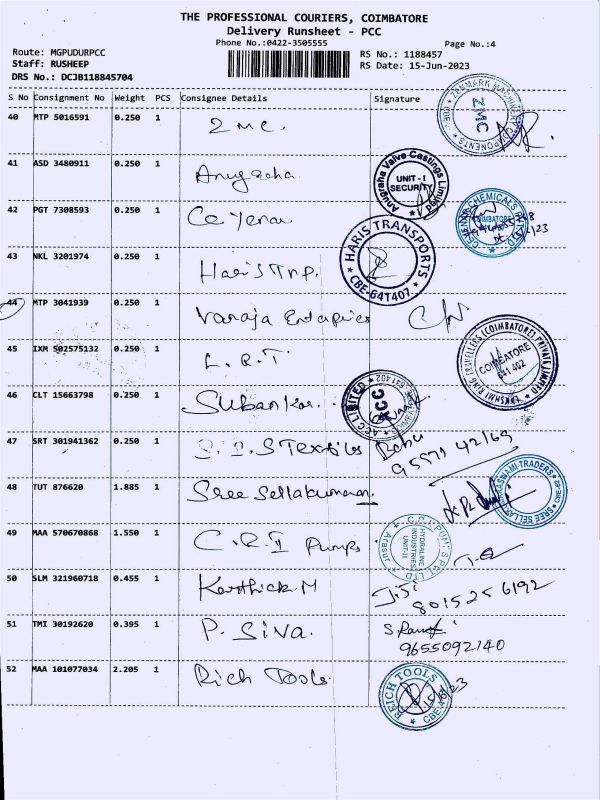 THE PROFESSIONAL COURIERS, COIMBATORE
Delivery Runsheet - PCC
Phone No.:0422-3505555
Page No.:4
Route: MGPUDURPCC
Staff: RUSHEEP
DRS No.: DCJB118845704
RS No.: 1188457
RS Date: 15-Jun-2023
S No Consignment No Weight PCS Consignee Details Signature
40 MTP 5016591 0.250 1 ZMC.
ZENMARK MACHINERY COMPONENTS CBE ZMC
41 ASD 3480911 0.250 1 Anugraha
Anugraha Valve Castings Limited UNIT - I SECURITY
42 PGT 7308593 0.250 1 Ceyenar
CHEMICALS COIMBATORE
43 NKL 3201974 0.250 1 Haris Trp.
HARIS TRANSPORTS CBE-641407
44 MTP 3041939 0.250 1 Varaja Enterprises
45 IXM 502575132 0.250 1 L.R.T.
LAKSHMI RING TRAVELLERS (COIMBATORE) PRIVATE LIMITED COIMBATORE 641 402
46 CLT 15663798 0.250 1 Subankar.
ACC LIMITED ACC
47 SRT 301941362 0.250 1 S Textiles Babu
95571 42169
48 TUT 876620 1.885 1 Sree Sellakumaran
SREE SELLANDIYASWAMI TRADERS
49 MAA 570670868 1.550 1 C.R.I Pumps
C.R.I. PUMPS PVT LTD HYDRALINE INDUSTRIES UNIT-II Arasur
50 SLM 321960718 0.455 1 Karthick.M Jiji
8015256192
51 TMI 30192620 0.395 1 P. Siva.
9655092140
52 MAA 101077034 2.205 1 Rich Tools
REICH TOOLS